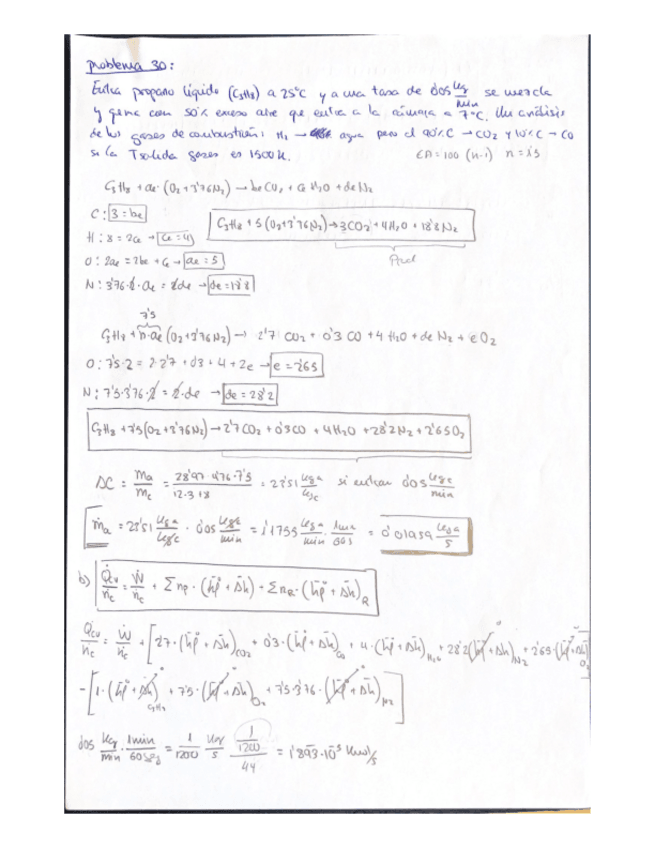 Problema 30:
Entra propano líquido (C3H8) a 25ºC y a una tasa de 0'05 kg/min se mezcla
y quema con 50% exceso aire que entra a la cámara a 7ºC. Un análisis
de los gases de combustión: H2 → agua pero el 90% C → CO2 y 10% C → CO
si la T salida gases es 1500 K. EA = 100 (n-1) n = 1'5
C3H8 + ae · (O2 + 3'76N2) → be CO2 + ce H2O + de N2
C: 3 = be
H: 8 = 2ce → ce = 4
C3H8 + 5 (O2 + 3'76N2) → 3CO2 + 4H2O + 18'8 N2
O: 2ae = 2be + ce → ae = 5
Prod
N: 3'76·2·ae = 2de → de = 18'8
7'5
C3H8 + n·ae (O2 + 3'76N2) → 2'7 CO2 + 0'3 CO + 4 H2O + de N2 + e O2
O: 7'5·2 = 2·2'7 + 0'3 + 4 + 2e → e = 2'65
N: 7'5·3'76·2 = 2·de → de = 28'2
C3H8 + 7'5(O2 + 3'76N2) → 2'7CO2 + 0'3CO + 4H2O + 28'2N2 + 2'65O2
= ma/mc = 28'97·4'76·7'5 / 12·3+8 = si entran 0'05 kg c/min
ṁa = · 0'05 kg c/min = 1'1755 kg a/min · 1min/60s = 0'01959 kg a/s
b) Q̇cv/ṅc = Ẇ/ṅc + Σnp · (h̄fº + Δh̄) - ΣnR · (h̄fº + Δh̄)R
Q̇cv/ṅc = Ẇ/ṅc + [2'7 · (h̄fº + Δh̄)CO2 + 0'3 · (h̄fº + Δh̄)CO + 4 · (h̄fº + Δh̄)H2O + 28'2 (h̄fº + Δh̄)N2 + 2'65 (h̄fº + Δh̄)O2]
- [1 · (h̄fº + Δh̄)C3H8 + 7'5 · (h̄fº + Δh̄)O2 + 7'5·3'76 · (h̄fº + Δh̄)N2]
0'05 kg/min · 1min/60seg = 1/1200 kg/s 1/1200 / 44 = 1'893·10⁻⁵ kmol/s